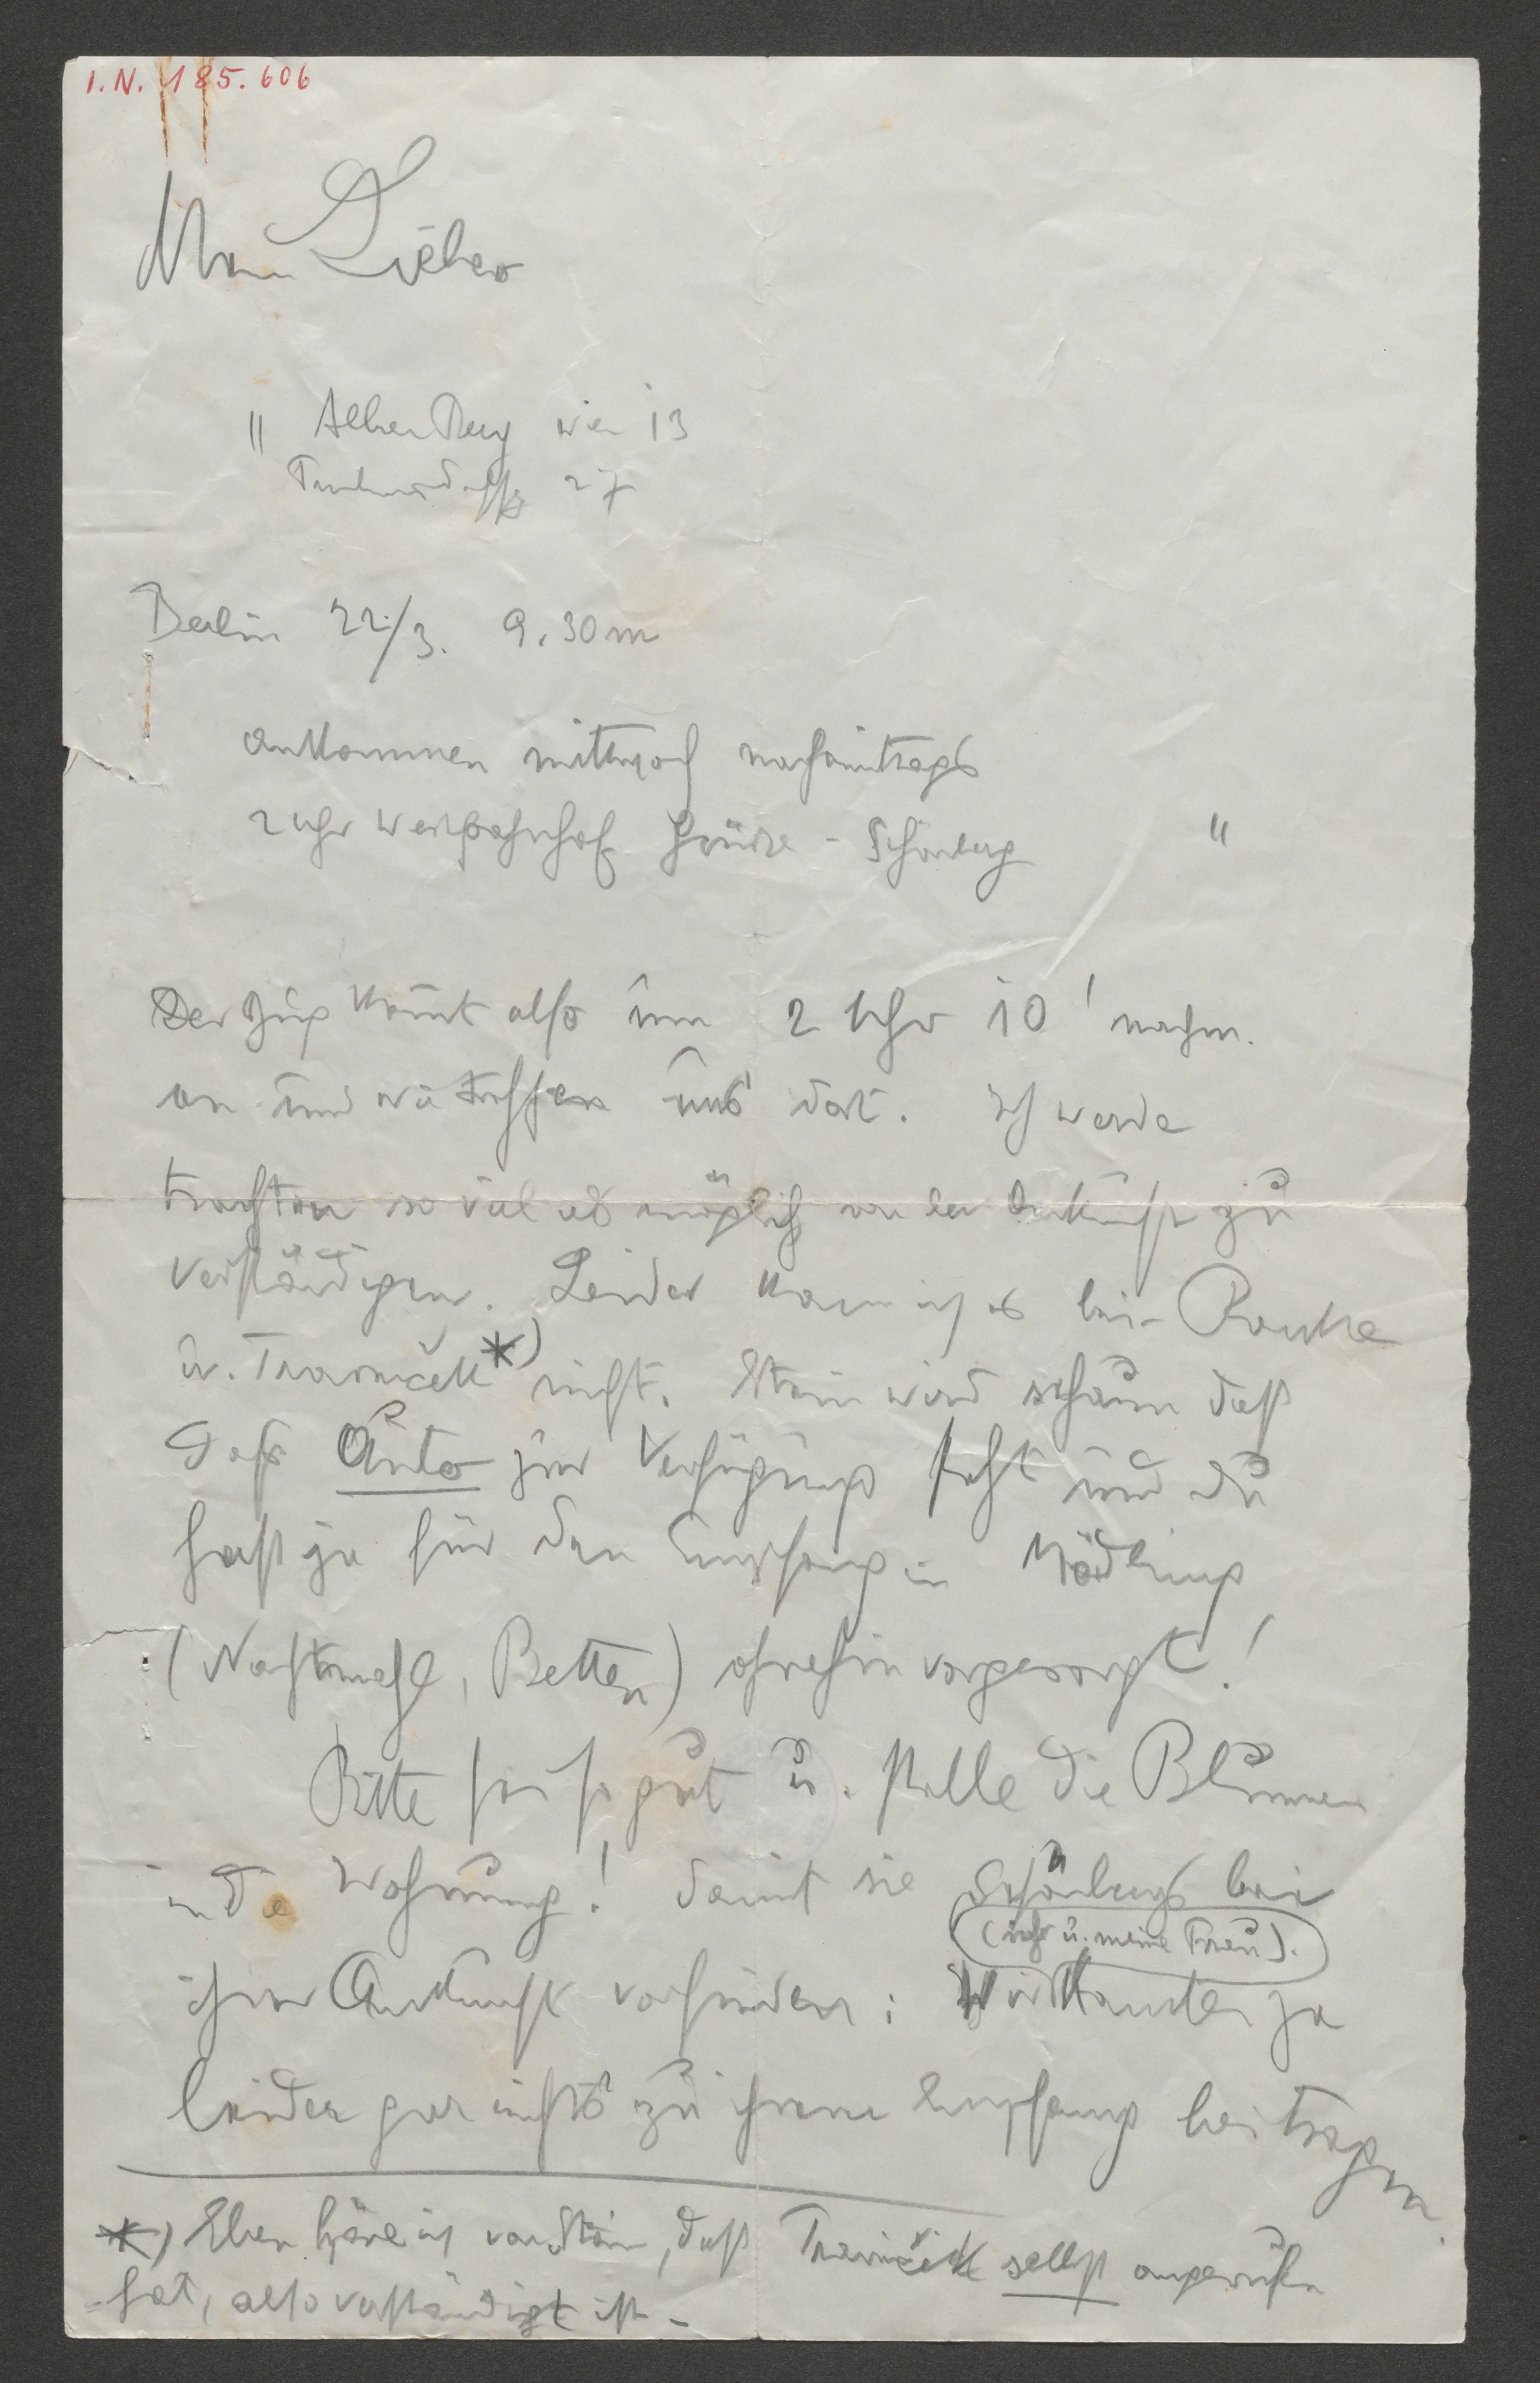 I.N. 185.606
Mein Lieber
" Alban Berg Wien 13
Trauttmansdorffg 27
Berlin 22./3. 9.30m
ankommen mittwoch nachmittags
2 uhr Westbahnhof Grüsse - Schönberg "
Der Zug kom̄t also um 2 Uhr 10' nachm.
an und wir treffen uns dort. Ich werde
trachten so viel als möglich von der Ankunft zu
verständigen. Leider kann ich es bei Ranke
u. Travniček *) nicht. Stein wird schaun daß
daß Auto zur Verfügung steht und du
hast ja für den Empfang in Mödling
(Nachtmahl, Betten) ohnehin vorgesorgt!
Bitte sei so gut u. stelle die Blumen
in die Wohnung! damit sie Schönbergs bei
(ich u. meine Frau).
ihrer Ankunft vorfinden: Wir konnten ja
leider gar nichts zu ihrem Empfang beitragen.
*) Eben höre ich von Stein, daß Travniček selbst angerufen
hat, also verständigt ist -